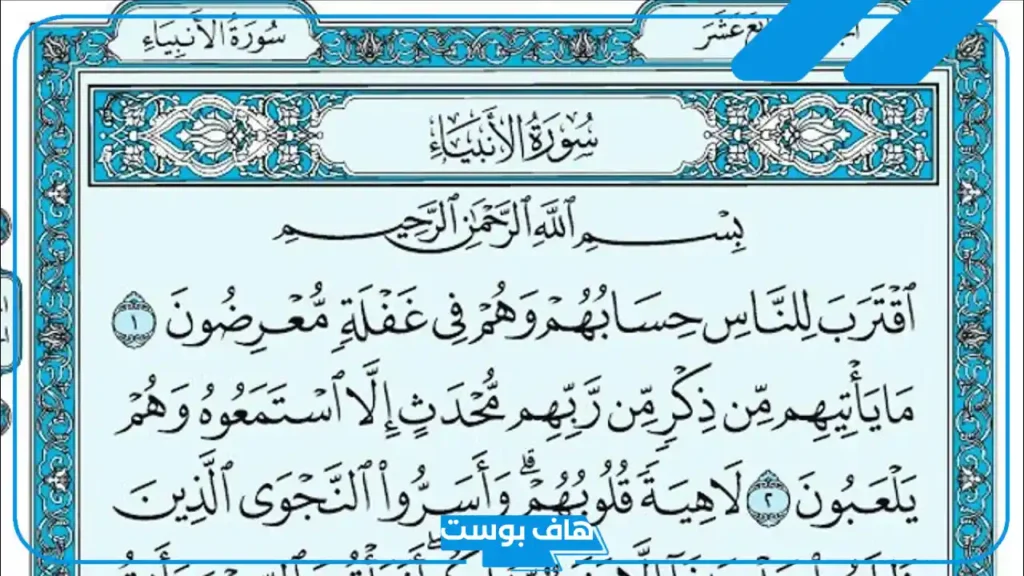 سُورَةُ الأَنبِيَاءِ
عَشَرَ
سُورَةُ الأَنبِيَاءِ
بِسْمِ ٱللَّهِ ٱلرَّحْمَٰنِ ٱلرَّحِيمِ
ٱقْتَرَبَ لِلنَّاسِ حِسَابُهُمْ وَهُمْ فِى غَفْلَةٍ مُّعْرِضُونَ ١
مَا يَأْتِيهِم مِّن ذِكْرٍ مِّن رَّبِّهِم مُّحْدَثٍ إِلَّا ٱسْتَمَعُوهُ وَهُمْ
يَلْعَبُونَ ٢ لَاهِيَةً قُلُوبُهُمْ ۗ وَأَسَرُّوا۟ ٱلنَّجْوَى ٱلَّذِينَ
هاف بوست